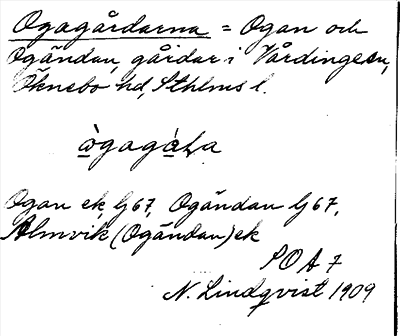 Ogagårdarna = Ogan och
Ogändan, gårdar i Vårdinge sn,
Öknebo hd, Sthlms l.
ògagàɭa
Ogan ek lj 67, Ogändan lj 67,
Almvik (Ogändan) ek
SOA 7
N. Lindqvist 1909